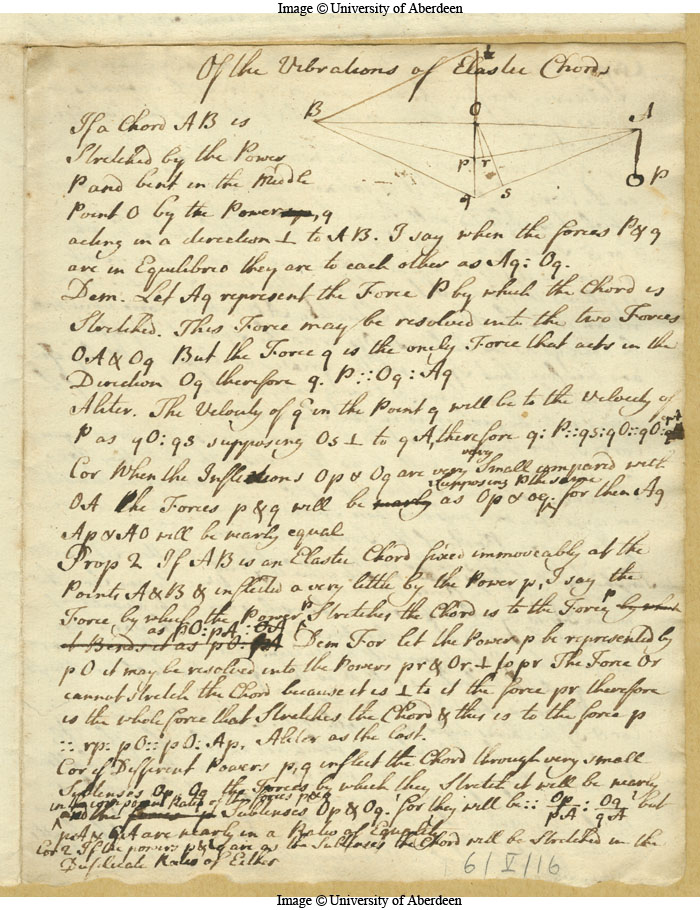 Image © University of Aberdeen
Of the Vibrations of Elastic Chords
B O A p r q s P
If a Chord AB is
Stretched by the Power
P and bent in the Middle
Point O by the Power q
acting in a direction ⊥ to AB. I say when the forces P & q
are in Equilibrio they are to each other as Aq: Oq.
Dem. Let Aq represent the Force P by which the Chord is
Stretched. This Force may be resolved into the two Forces
OA & Oq But the Force q is the only Force that acts in the
Direction Oq therefore q. P :: Oq : Aq
Aliter. The Velocity of q in the Point q will be to the Velocity of
P as qO: qs supposing Os ⊥ to qA, therefore q: P :: qs: qO :: qO: qA
Cor When the Inflections Op & Oq are very Small compared with
OA the Forces p & q will be nearly as Op & oq. supposing P the same for then Aq
Ap & AO will be nearly equal
Prop 2 If AB is an Elastic Chord fixed immoveably at the
Points A & B & inflected a very little by the Power p, I say the
Force by which the Power p Stretches the Chord is to the Force p by which
it Bends it as pO: pA
as pO: pA: OA Dem For let the Power p be represented by
pO it may be resolved into the Powers pr & Or ⊥ to pr The Force Or
cannot stretch the Chord because it is ⊥ to it the force pr therefore
is the whole force that Stretches the Chord & this is to the force p
:: rp: pO :: pO: Ap, Aliter as the last.
Cor if Different Powers p, q inflect the Chord through very small
Subtenses Op, Oq the Forces by which they Stretch it will be nearly
in Ratio of the forces p & q
and the Subtenses Op & Oq. for they will be :: Op/pA : Oq/qA but
pA & qA are nearly in a Ratio of Equality
Cor 2 If the powers p & q are as the Subtenses the Chord will be Stretched in the
Duplicate Ratio of Either
6/V/16
Image © University of Aberdeen